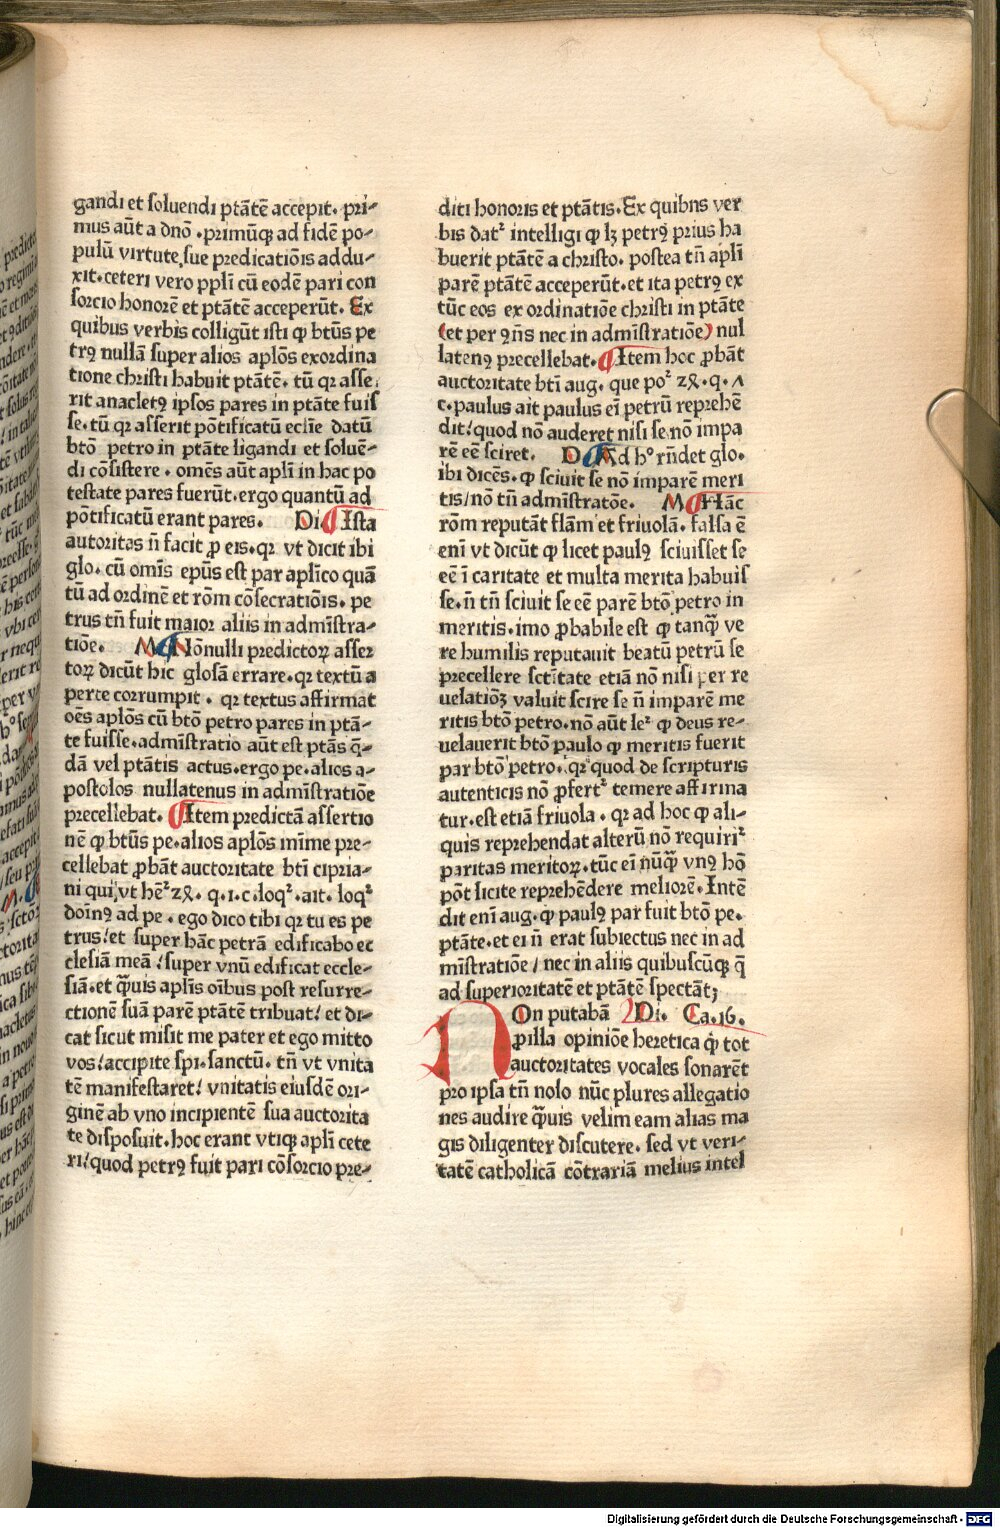 gandi et soluendi ptātē accepit. pri-
mus aūt a dnō .primūqꝫ ad fidē po-
pulū virtute sue predicatiōis addu-
xit.ceteri vero ppli cū eodē pari con
sorcio honorē et ptātē acceperūt. Ex
quibus verbis colligūt isti ꝙ btūs pe
trꝰ nullā super alios aplōs exordina
tione christi habuit ptātē. tū qr asse
rit anacletꝰ ipsos pares in ptāte fuis
se.tū qr asserit pōtificatū eclīe datū
btō petro in ptāte ligandi et soluē-
di cōsistere . omēs aūt apli in hac po
testate pares fuerūt.ergo quantū ad
pōtificatū erant pares. Di. Ista
autoritas n̄ facit ꝓ eis.qr vt dicit ibi
glo. cū omīs epūs est par aplīco quā
tū ad ordinē et rōm cōsecratiōis. pe
trus tn̄ fuit maior aliis in admīstra-
tiōe. M Nōnulli predictoꝝ asser
toꝝ dicūt hic glosā errare.qr textū a
perte corrumpit . qr textus affirmat
oēs aplōs cū btō petro pares in ptā-
te fuisse.admīstratio aūt est ptās q̄-
dā vel ptātis actus.ergo pe.alios a-
postolos nullatenus in admīstratiōe
precellebat. Item predictā assertio
nē ꝙ btūs pe.alios aplōs mīme pre-
cellebat ꝓbāt auctoritate btī cipria-
ni qui vt hēᷣ 24. q. 1. c. loqᷣ .ait. loqᷣ
doīnꝰ ad pe . ego dico tibi qr tu es pe
trus/et super hāc petrā edificabo ec
clesiā meā /super vnū edificat eccle-
siā.et q̄uis aplīs oībus post resurre-
ctionē suā parē ptātē tribuat/ et di-
cat sicut misit me pater et ego mitto
vos/accipite spi.sanctū. tn̄ vt vnita
tē manifestaret/ vnitatis eiusdē ori-
ginē ab vno incipientē sua auctorita
te disposuit.hoc erant vtiqꝫ apli cete
ri/quod petrꝰ fuit pari cōsorcio pre-
diti honoris et ptātis.Ex quibns ver
bis datᷣ intelligi ꝙ lꝫ petrꝰ prius ha
buerit ptātē a christo. postea tn̄ apli
parē ptātē acceperūt.et ita petrꝰ ex
tūc eos ex ordinatiōe christi in ptāte
(et per ꝯn̄s nec in admīstratiōe) nul
latenꝰ precellebat. Item hoc ꝓbāt
auctoritate btī aug. que poᷣ 24. q. 1
c.paulus ait paulus ei petrū reprehē
dit/quod nō auderet nisi se nō impa
rē eē sciret. D. Ad hº rn̄det glo.
ibi dicēs. ꝙ sciuit se nō imparē meri
tis/nō tn̄ admīstratōe. M Hāc
rōm reputāt flām et friuolā. falsa ē
eni vt dicūt ꝙ licet paulꝰ sciuisset se
eē ī caritate et multa merita habuis
se.n̄ tn̄ sciuit se eē parē btō petro in
meritis.imo ꝓbabile est ꝙ tanq̄ ve
re humilis reputauit beatū petrū se
precellere sctītate etiā nō nisi per re
uelatiōꝫ valuit scire se n̄ imparē me
ritis btō petro.nō aūt leᷣ ꝙ deus re-
uelauerit btō paulo ꝙ meritis fuerit
par btō petro. qr quod de scripturis
autenticis nō ꝓfertᷣ temere affirma
tur.est etiā friuola . qr ad hoc ꝙ ali-
quis reprehendat alterū nō requiriᷣ
paritas meritoꝝ.tūc ei nūq̄ vnꝰ hō
pōt licite reprehēdere meliorē.Intē
dit eni aug.ꝙ paulꝰ par fuit btō pe.
ptāte.et ei n̄ erat subiectus nec in ad
mīstratiōe / nec in aliis quibuscūqꝫ q̄
ad superioritatē et ptātē spectāt;
Non putabā Di. Ca.16.
ꝓ illa opiniōe heretica ꝙ tot
auctoritates vocales sonarēt
pro ipsa tn̄ nolo nūc plures allegatio
nes audire q̄uis velim eam alias ma
gis diligenter discutere. sed vt veri-
tatē catholicā cōtrariā melius intel
Digitalisierung gefördert durch die Deutsche Forschungsgemeinschaft - DFG